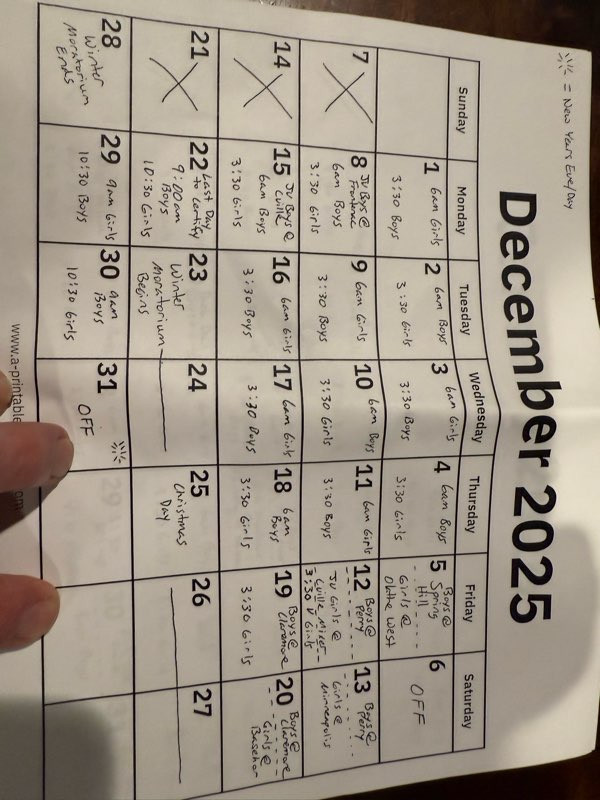 = New Years Eve/Day
December 2025
Sunday
Monday
Tuesday
Wednesday
Thursday
Friday
Saturday
1 6am Girls
3:30 Boys
2 6am Boys
3:30 Girls
3 6am Girls
3:30 Boys
4 6am Boys
3:30 Girls
5 Boys @
Spring
Hill
Girls @
Olathe West
6
OFF
7
8 JV Boys @
Frontenac
6am Boys
3:30 Girls
9 6am Girls
3:30 Boys
10 6am Boys
3:30 Girls
11 6am Girls
3:30 Boys
12 Boys @
Perry
JV Girls @
Cville Mixer
3:30 V Girls
13 Boys @
Perry
Girls @
Minneapolis
14
15 JV Boys @
Cville
6am Boys
3:30 Girls
16 6am Girls
3:30 Boys
17 6am Girls
3:30 Boys
18 6am
Boys
3:30 Girls
19 Boys @
Claremore
3:30 Girls
20 Boys @
Claremore
Girls @
Basehor
21
22 Last Day
to Certify
9:00am
Boys
10:30 Girls
23
Winter
Moratorium
Begins
24
25
Christmas
Day
26
27
28
Winter
Moratorium
Ends
29 9am Girls
10:30 Boys
30 9am
Boys
10:30 Girls
31
OFF
www.a-printable
com